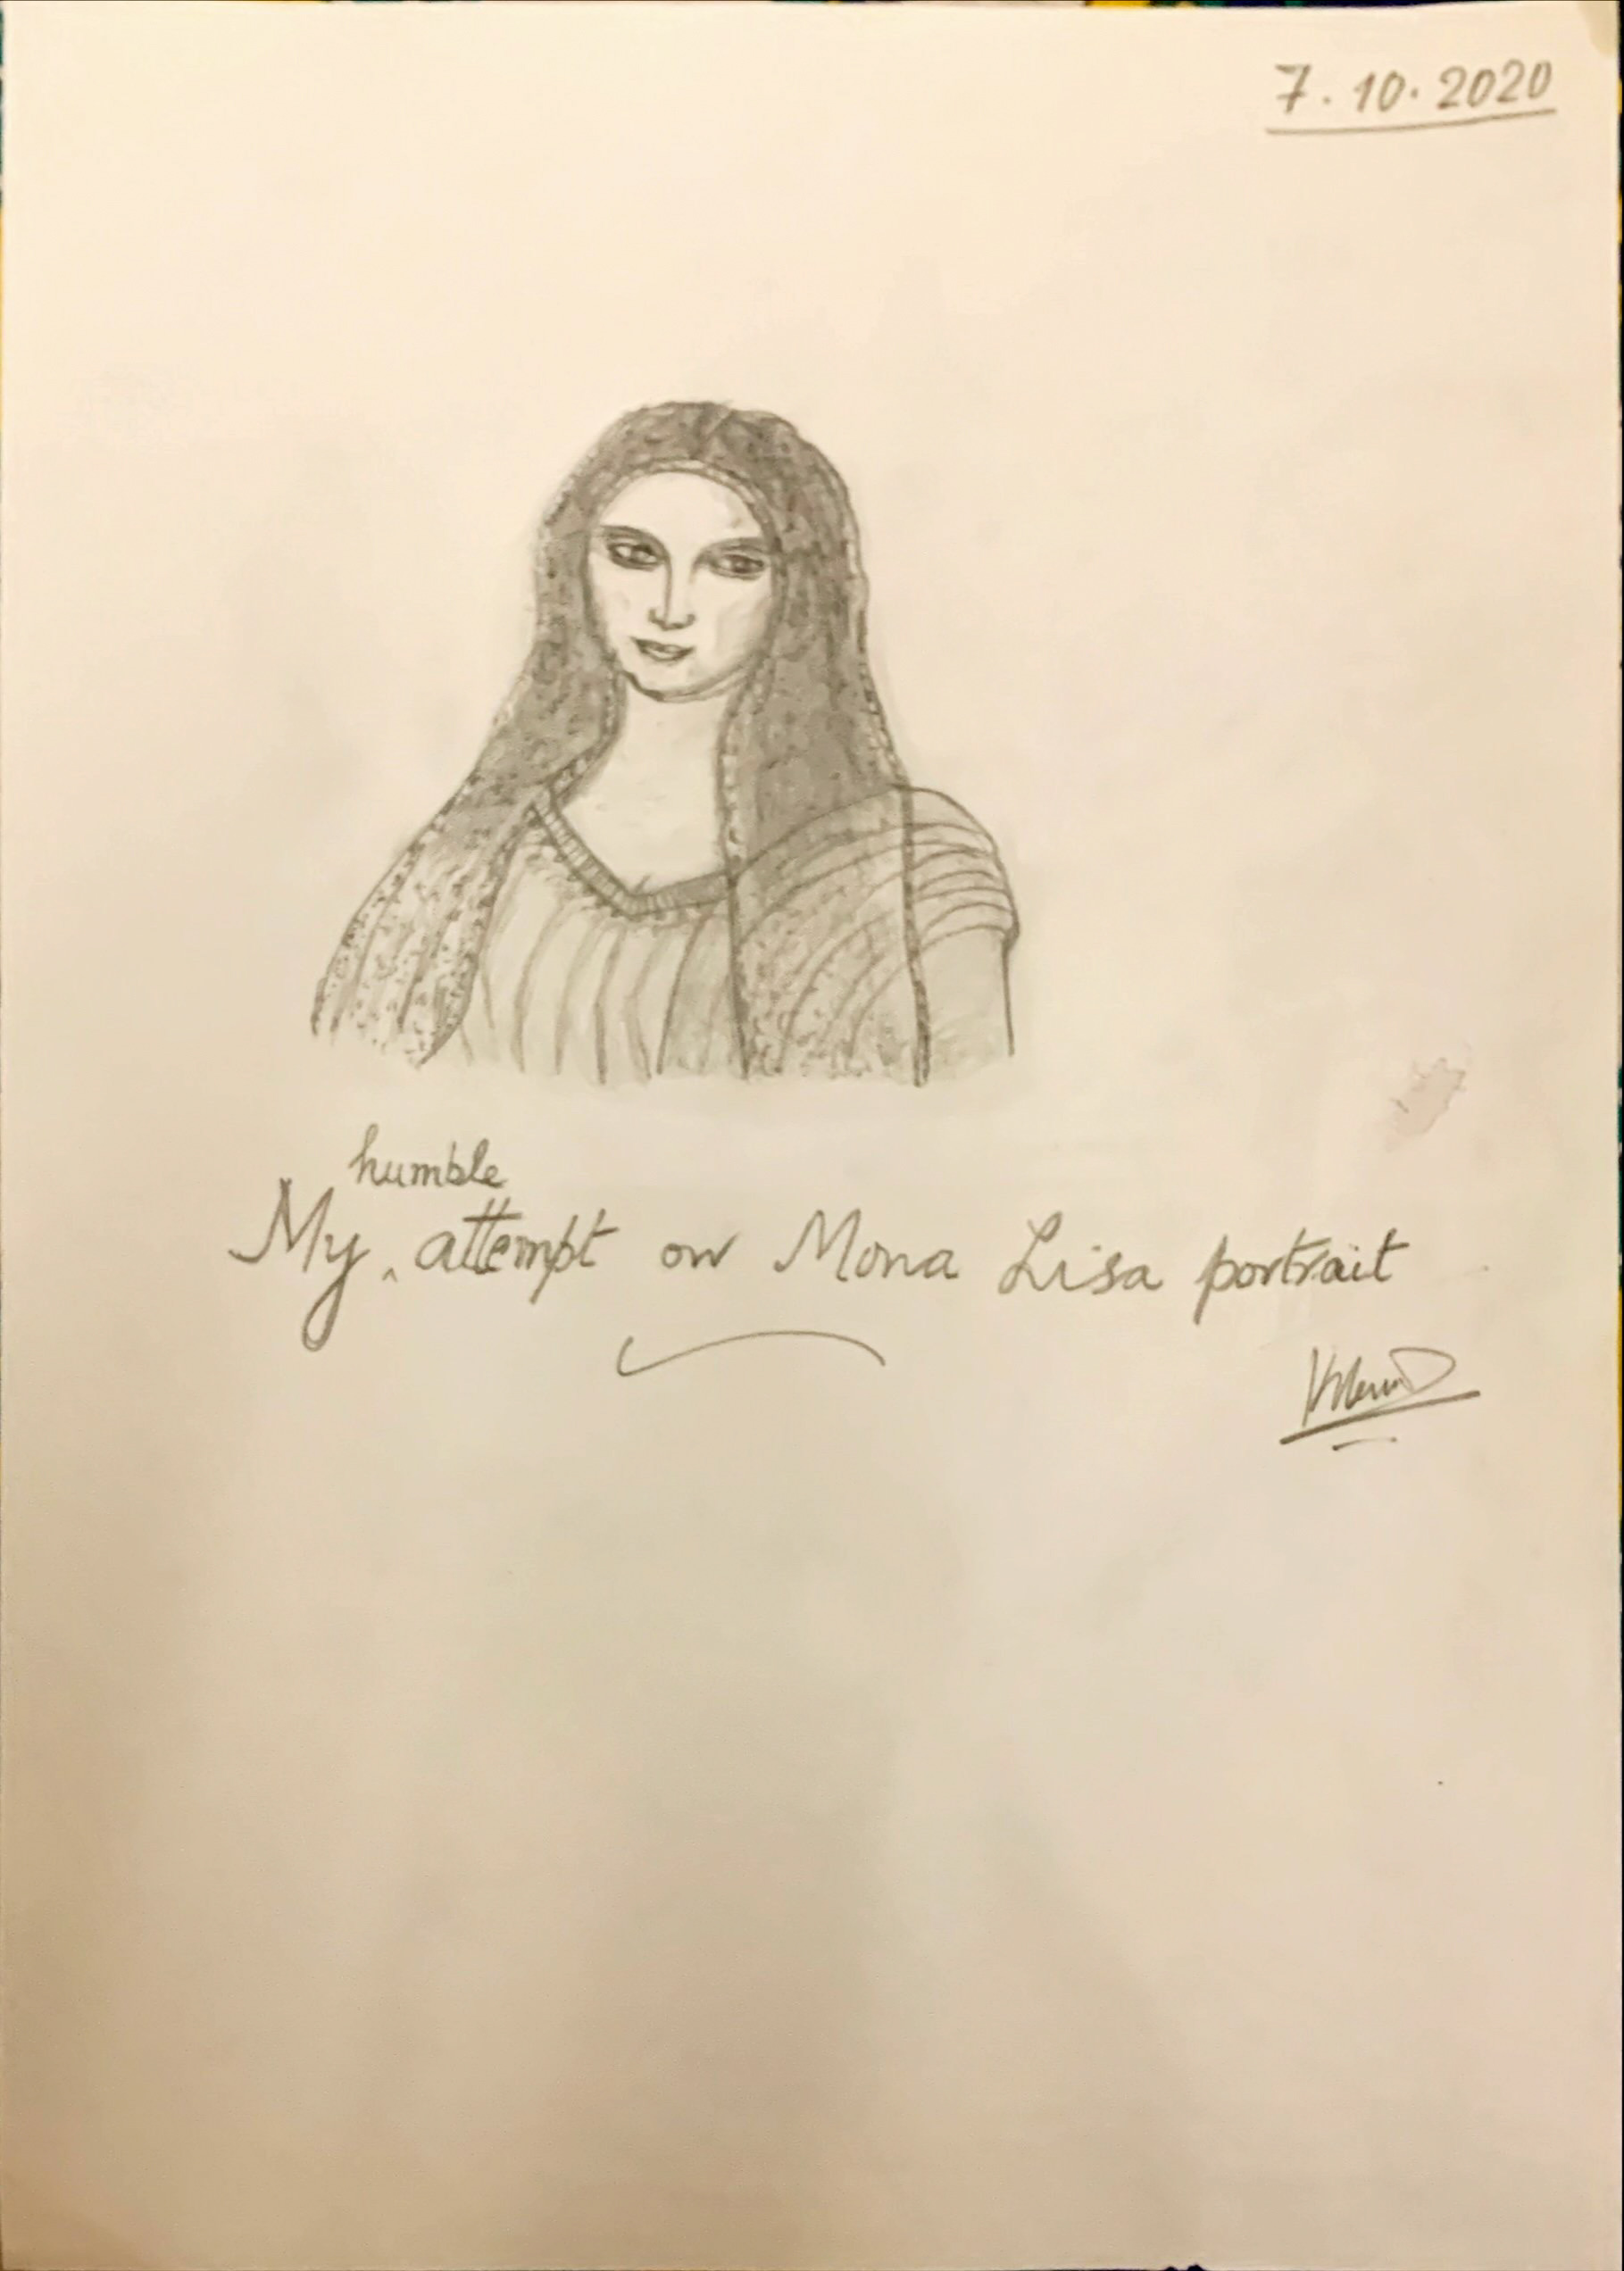 7.10.2020
My humble attempt on Mona Lisa portrait